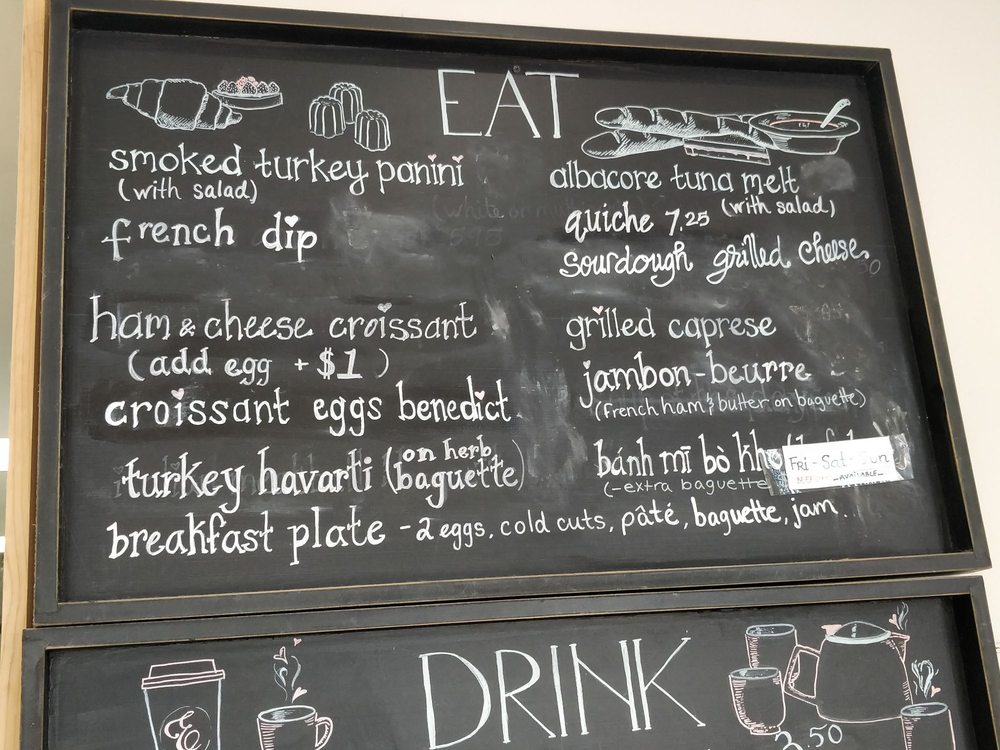 EAT
smoked turkey panini
(with salad)
french dip
ham & cheese croissant
(add egg + $1)
croissant eggs benedict
turkey havarti (on herb
baguette)
breakfast plate - 2 eggs, cold cuts, pâté, baguette, jam
albacore tuna melt
(with salad)
quiche 7.25
sourdough grilled cheese
grilled caprese
jambon-beurre
(French ham & butter on baguette)
bánh mī bò
(-extra baguette
Fri - Sat - Sun
DRINK
3.50